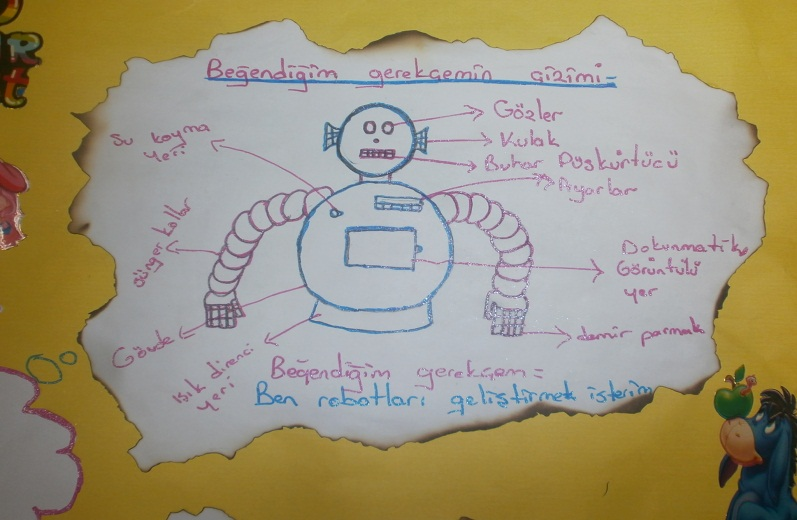 Beğendiğim gerekçemin çizimi=
Gözler
Kulak
Buhar Püskürtücü
Ayarlar
Su koyma
yeri
Sünger kollar
Dokunmatik
Görüntülü
yer
Gövde
Işık direnci
yeri
demir parmak
Beğendiğim gerekçem=
Ben robotları geliştirmek isterim